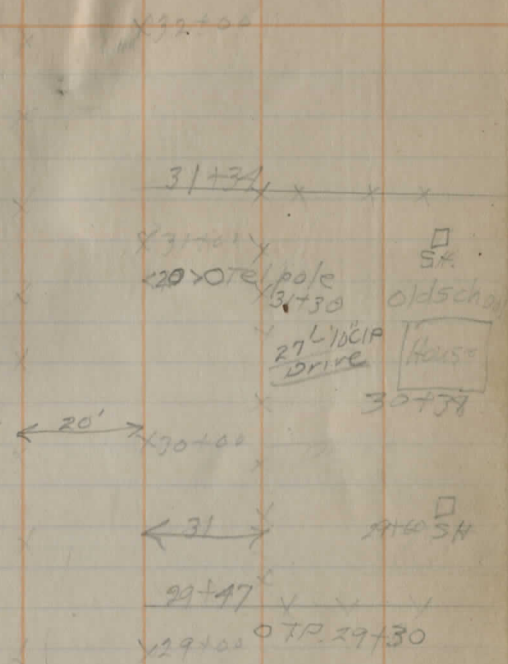 32+00
31+34
31+00
SH.
<20> O Tel pole
31+30
old school
27'-10" CIP
Drive
House
30+38
20'
30+00
31
29+60 SH
29+47
O T.P. 29+30
29+00